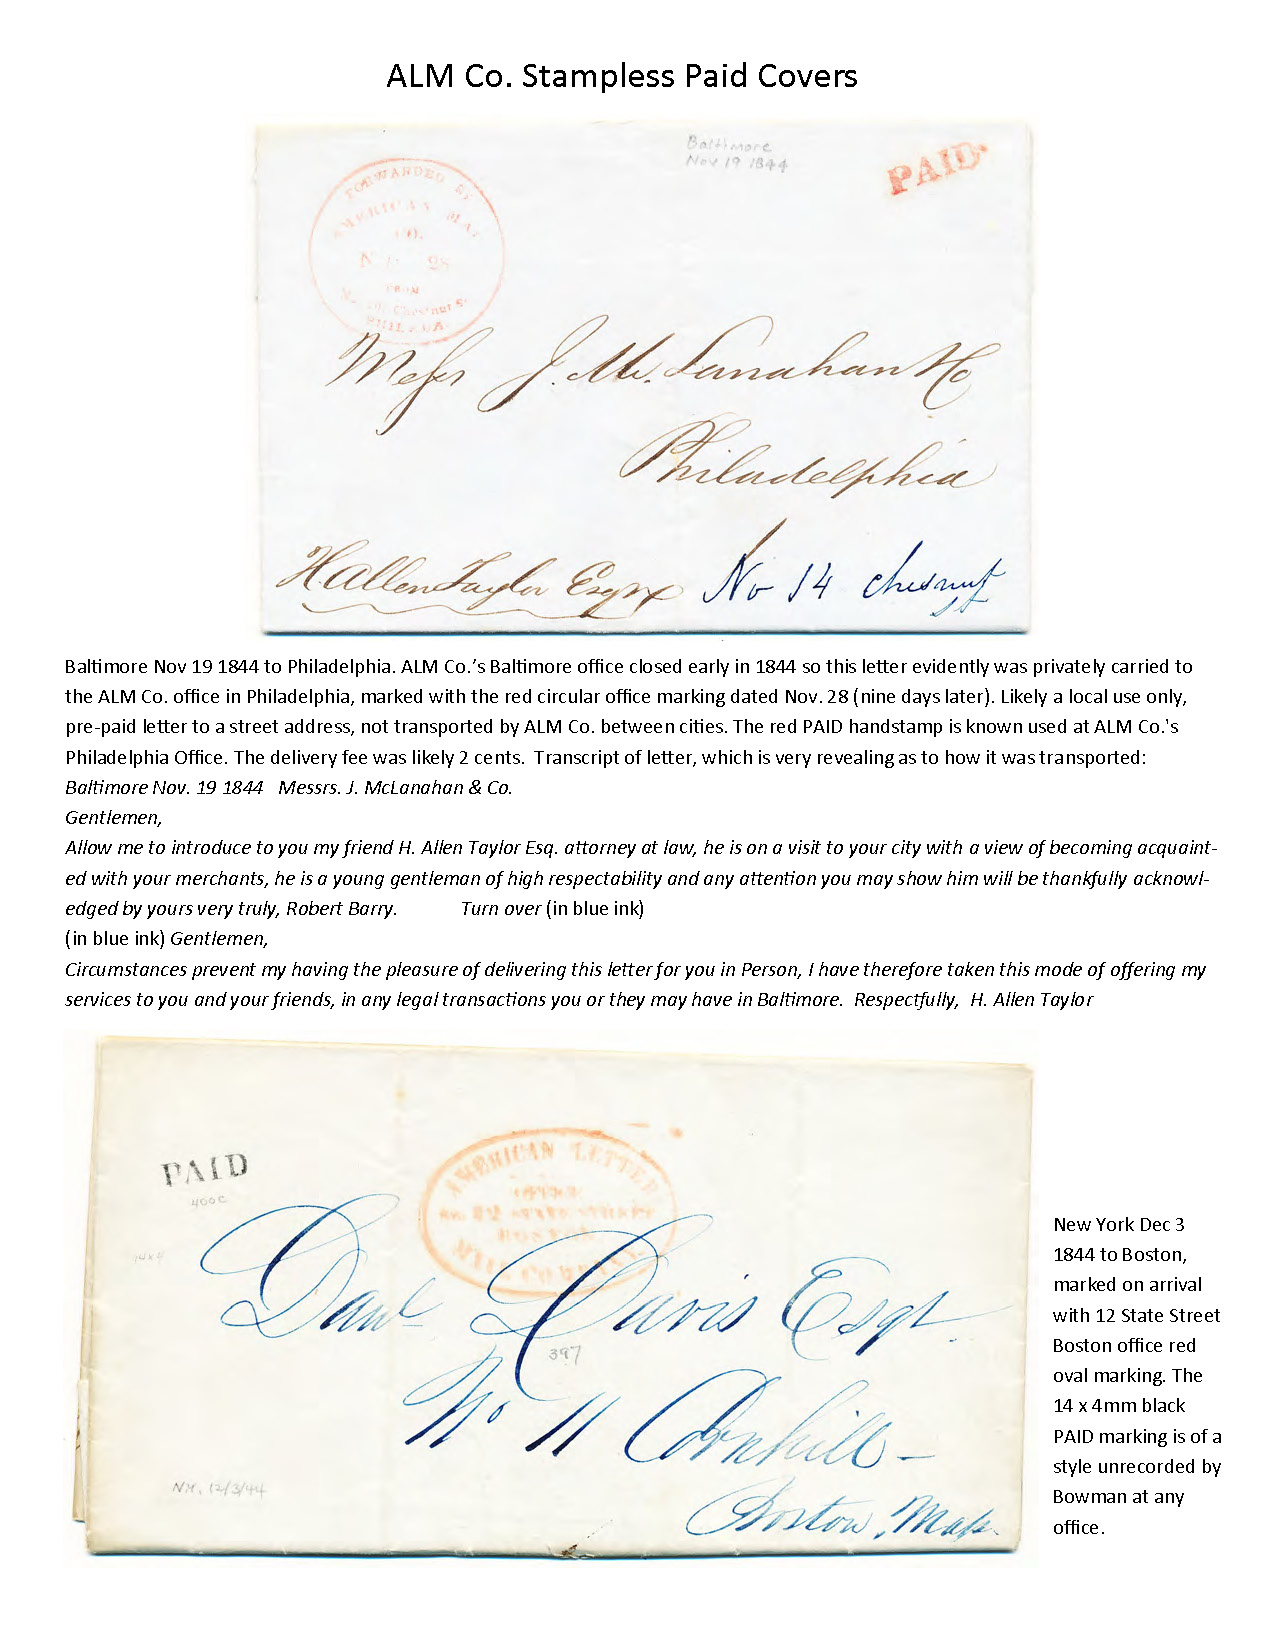 ALM Co. Stampless Paid Covers
Baltimore
Nov 19 1844
PAID
FORWARDED BY
AMERICAN MAI
CO.
28
FROM
Chestnut St
PHILADA.
Messrs J. Mc. Lanahan & Co
Philadelphia
H. Allen Taylor Esqr
No 14 Chesnut
st
Baltimore Nov 19 1844 to Philadelphia. ALM Co.'s Baltimore office closed early in 1844 so this letter evidently was privately carried to
the ALM Co. office in Philadelphia, marked with the red circular office marking dated Nov. 28 (nine days later). Likely a local use only,
pre-paid letter to a street address, not transported by ALM Co. between cities. The red PAID handstamp is known used at ALM Co.'s
Philadelphia Office. The delivery fee was likely 2 cents. Transcript of letter, which is very revealing as to how it was transported:
Baltimore Nov. 19 1844 Messrs. J. McLanahan & Co.
Gentlemen,
Allow me to introduce to you my friend H. Allen Taylor Esq. attorney at law, he is on a visit to your city with a view of becoming acquaint-
ed with your merchants, he is a young gentleman of high respectability and any attention you may show him will be thankfully acknowl-
edged by yours very truly, Robert Barry. Turn over (in blue ink)
(in blue ink) Gentlemen,
Circumstances prevent my having the pleasure of delivering this letter for you in Person, I have therefore taken this mode of offering my
services to you and your friends, in any legal transactions you or they may have in Baltimore. Respectfully, H. Allen Taylor
PAID
400c
14x4
AMERICAN LETTER
OFFICE
No. 12 STATE STREET
BOSTON
MAIL COMPANY.
Danl Davis Esqr.
397
No 11 Cornhill -
Boston, Mass.
NY. 12/3/44
New York Dec 3
1844 to Boston,
marked on arrival
with 12 State Street
Boston office red
oval marking. The
14 x 4mm black
PAID marking is of a
style unrecorded by
Bowman at any
office.